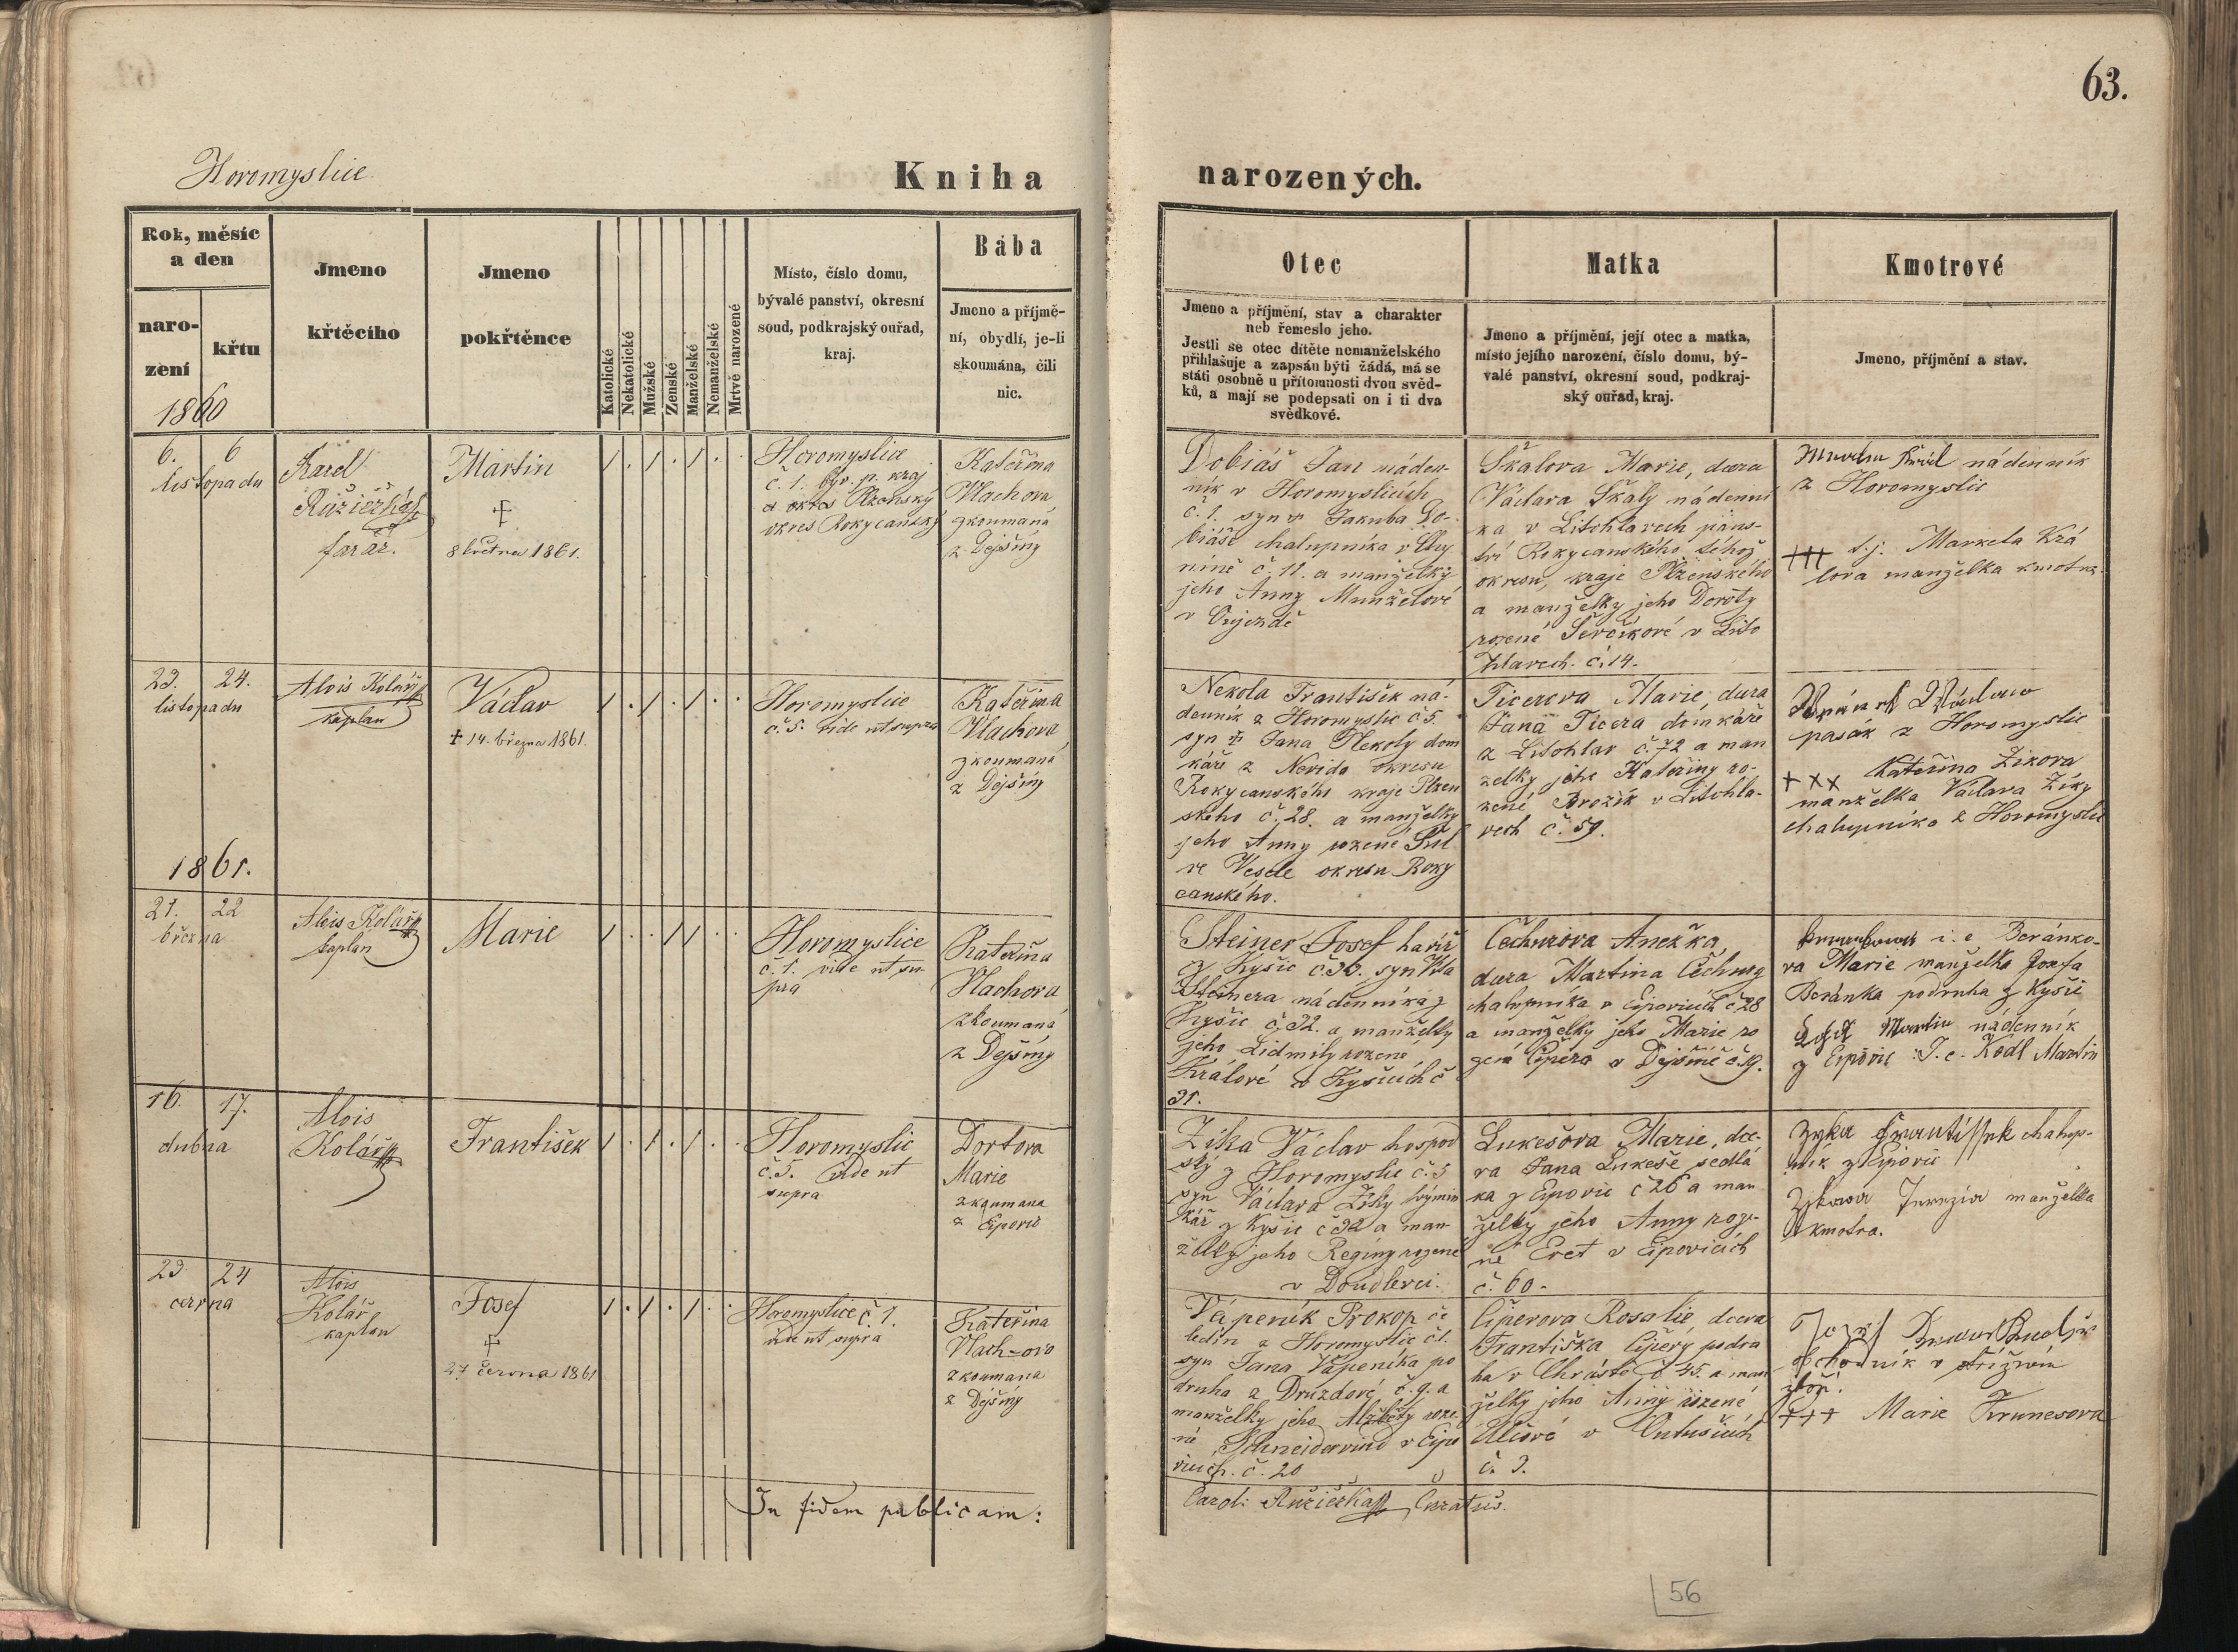 63.
Horomyslice
Kniha narozených.
Rok, měsíc
a den
naro-
zení
křtu
Jmeno
křtěcího
Jmeno
pokřtěnce
Katolické
Nekatolické
Mužské
Ženské
Manželské
Nemanželské
Mrtvě narozené
Místo, číslo domu,
bývalé panství, okresní
soud, podkrajský ouřad,
kraj.
Bába
Jmeno a příjmě-
ní, obydlí, je-li
skoumána, čili
nic.
Otec
Jmeno a příjmění, stav a charakter
neb řemeslo jeho.
Jestli se otec dítěte nemanželského
přihlašuje a zapsán býti žádá, má se
státi osobně u přítomnosti dvou svěd-
ků, a mají se podepsati on i ti dva
svědkové.
Matka
Jmeno a příjmění, její otec a matka,
místo jejího narození, číslo domu, bý-
valé panství, okresní soud, podkraj-
ský ouřad, kraj.
Kmotrové
Jmeno, příjmění a stav.
1860
6. 6
listopadu
Karel
Růžička
farář.
Martin
8 května 1861.
Horomyslice
č. 1. býv. p. kraj
a okres Plzenský
okres Rokycanský
Kateřina
Vlachova
zkoumaná
z Dejšíny
Dobiáš Jan náden-
ník v Horomyslicích
č. 1. syn Jakuba Do-
biáše chalupníka v
níně č. 11. a manželky
jeho Anny Munželové
v Oujezdě
Škalova Marie, dcera
Václava Škaly nádenní
ka v Litohlavech páns-
tví Rokycanského, téhož
okresu, kraje Plzenského
a manželky jeho Doroty
rozené Ševčíkové v Lito
hlavech. č. 14.
Martin Král nádenník
z Horomyslic
+++ t. j. Markéta Krá
lova manželka kmotra.
23. 24.
listopadu
Alois Kolář
kaplan
Václav
+ 14. března 1861.
Horomyslice
č. 5. vide ut supra
Kateřina
Vlachova
zkoumaná
z Dejšíny
Nekola František ná-
denník z Horomyslic č. 5.
syn Jana Nekoly dom
káře z Nevida okresu
Rokycanského kraje Plzen
ského č. 28. a manželky
jeho Anny rozené
ve Vesele okresu Roky
canského.
Ticerova Marie, dcera
Jana Ticera domkáře
z Litohlav č. 72 a man
želky jeho Kateřiny ro-
zené Brožík v Litohla-
vech č. 59.
Václaw
pasák z Horomyslic
+xx Kateřina Zikova
manželka Václava Ziky
chalupníka z Horomyslic
1861.
21. 22
března
Alois Kolář
kaplan
Marie
Horomyslice
č. 1. vide ut su-
pra
Kateřina
Vlachova
zkoumaná
z Dejšíny
Steiner Josef havíř
z Kyšic č. 30. syn Víta
Steinera nádenníka z
Kyšic č. 32. a manželky
jeho Lidmily rozené
Králové v Kyšicích č
31.
Čechurova Anežka,
dcera Martina Čechury
chalupníka v Ejpovicích č 28
a manželky jeho Marie ro
zené Cipera v Dejšině č 19.
i. e Beránko-
va Marie manželka Josefa
Beránka podruha z Kyšic
Martin nádenník
z Ejpovic : I. e. Kodl Martin
16. 17.
dubna
Alois
Kolář
František
Horomyslic
č. 5. vide ut
supra
Dortova
Marie
zkoumana
z Ejpovic
Zíka Václav hospod
ský z Horomyslic č. 5
syn Václava Ziky výmin
kář z Kyšic č 32 a man-
želky jeho Reginy rozené
v Doudlevci.
Lukešova Marie, dce-
ra Jana Lukeše sedlá
ka z Ejpovic č 26 a man
želky jeho Anny roze-
né Eret v Ejpovicích
č. 60.
Zyka Frantissek chalup-
ník z Ejpovic
Zykowa Terezia manželka
kmotra.
23 24
června
Alois
Kolář
kaplan
Josef
27 června 1861
Horomyslice č. 1.
vide ut supra
Kateřina
Vlach-ova
zkoumana
z Dejšíny
Vápeník Prokop če
ledín z Horomyslic č 1.
syn Jana Vápeníka po
druha z Druzdové, č. 9. a
manželky jeho Alžběty roze
né Schneidervind v Ejpo
vicích. č. 20
Ciperova Rosalie, dcera
Františka Cipery podru
ha v Chrástě č 45. a man
želky jeho Anny rozené
Ulčové v
č. 3.
Jozef
obchodník v střížním
zboží.
+++ Marie Krunesova
In fidem publicam:
Carol: Růžička, Curatus.
56